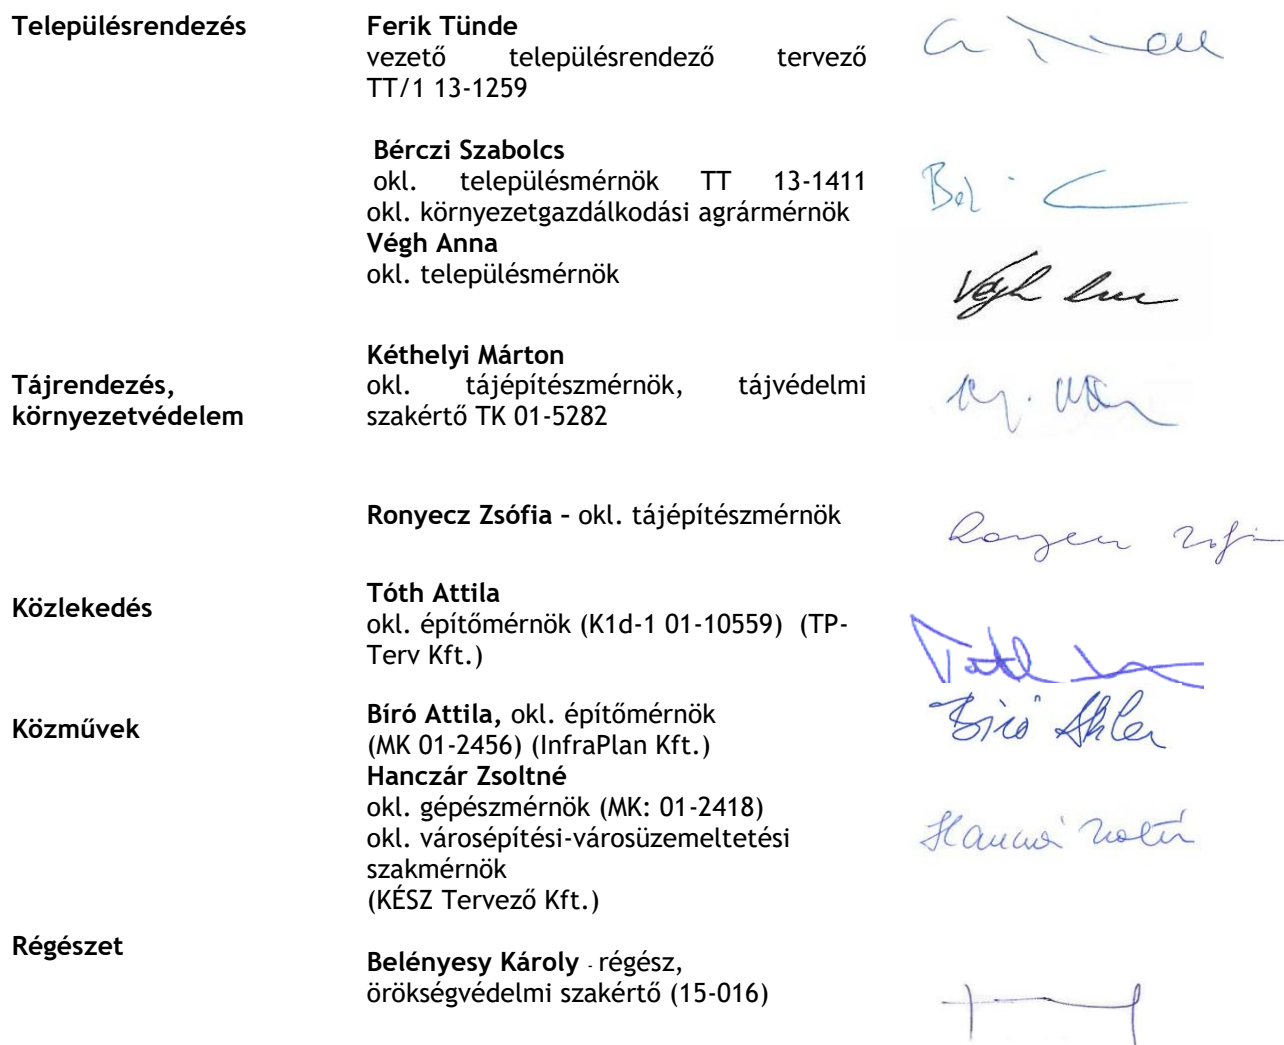 Településrendezés
Ferik Tünde
vezető településrendező tervező
TT/1 13-1259
Bérczi Szabolcs
okl. településmérnök TT 13-1411
okl. környezetgazdálkodási agrármérnök
Végh Anna
okl. településmérnök
Végh
Tájrendezés,
környezetvédelem
Kéthelyi Márton
okl. tájépítészmérnök, tájvédelmi
szakértő TK 01-5282
Ronyecz Zsófia – okl. tájépítészmérnök
Közlekedés
Tóth Attila
okl. építőmérnök (K1d-1 01-10559) (TP-
Terv Kft.)
Közművek
Bíró Attila, okl. építőmérnök
(MK 01-2456) (InfraPlan Kft.)
Bíró
Hanczár Zsoltné
okl. gépészmérnök (MK: 01-2418)
okl. városépítési-városüzemeltetési
szakmérnök
(KÉSZ Tervező Kft.)
Régészet
Belényesy Károly - régész,
örökségvédelmi szakértő (15-016)